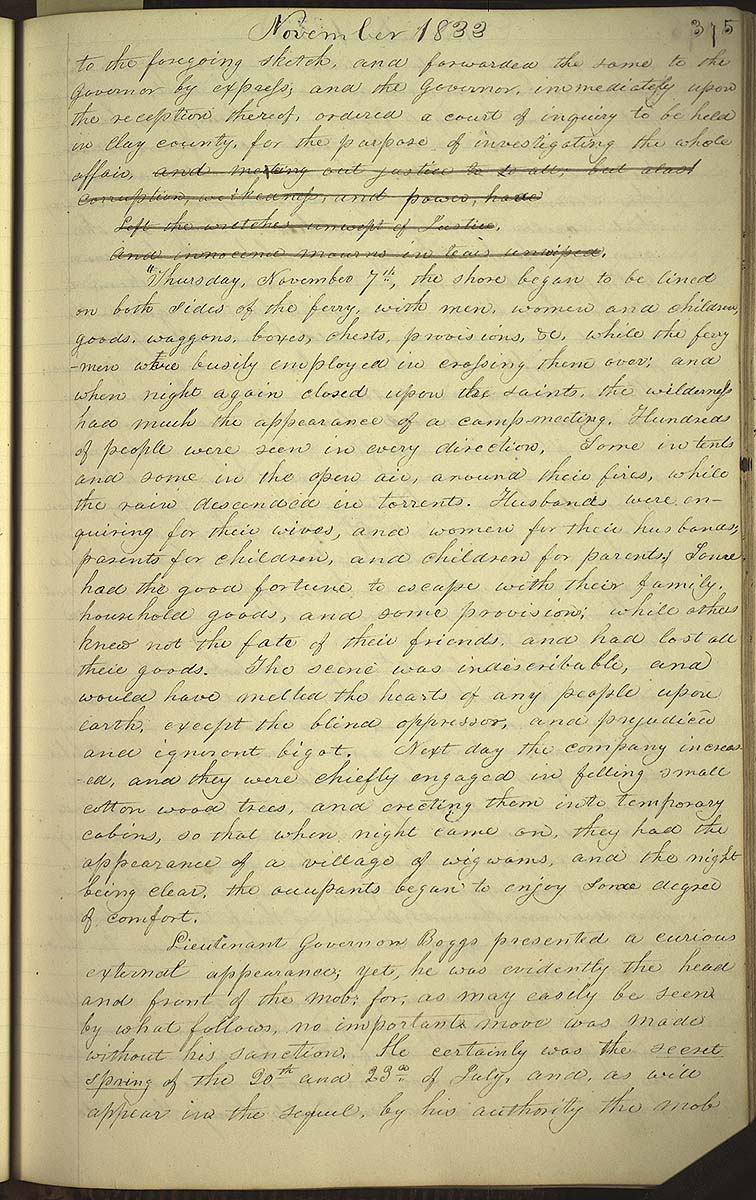 November 1833
375
to the foregoing sketch, and forwarded the same to the
Governor by express; and the Governor, immediately upon
the reception thereof, ordered a court of inquiry to be held
in Clay county, for the purpose of investigating the whole
affair, and meeting out justice to to all; but alas!
corruption, wickedness, and power, have
Left the wretches unwept of Justice,
And innocence mourns in tears unwiped.
"Thursday, November 7th, the shore began to be lined
on both sides of the ferry, with men, women and children,
goods, waggons, boxes, chests, provisions, &c, while the ferry
-men were busily employed in crossing them over; and
when night again closed upon the saints, the wilderness
had much the appearance of a camp-meeting. Hundreds
of people were seen in every direction, Some in tents
and some in the open air, around their fires, while
the rain descended in torrents. Husbands were en-
quiring for their wives, and women for their husbands;
parents for children, and children for parents; Some
had the good fortune to escape with their family,
household goods, and some provision; while others
knew not the fate of their friends, and had lost all
their goods. The scene was indescribable, and
would have melted the hearts of any people upon
earth, except the blind oppressor, and prejudiced
and ignorent bigot. Next day the company increas
-ed, and they were chiefly engaged in felling small
cotton wood trees, and erecting them into temporary
cabins, so that when night came on, they had the
appearance of a village of wigwams, and the night
being clear, the occupants began to enjoy some degree
of comfort.
Lieutenant Governor Boggs presented a curious
external appearance; yet, he was evidently the head
and front of the mob; for, as may easily be seen
by what follows, no important move was made
without his sanction. He certainly was the secret
spring of the 20th and 23rd of July, and, as will
appear in the sequel, by his authority the mob